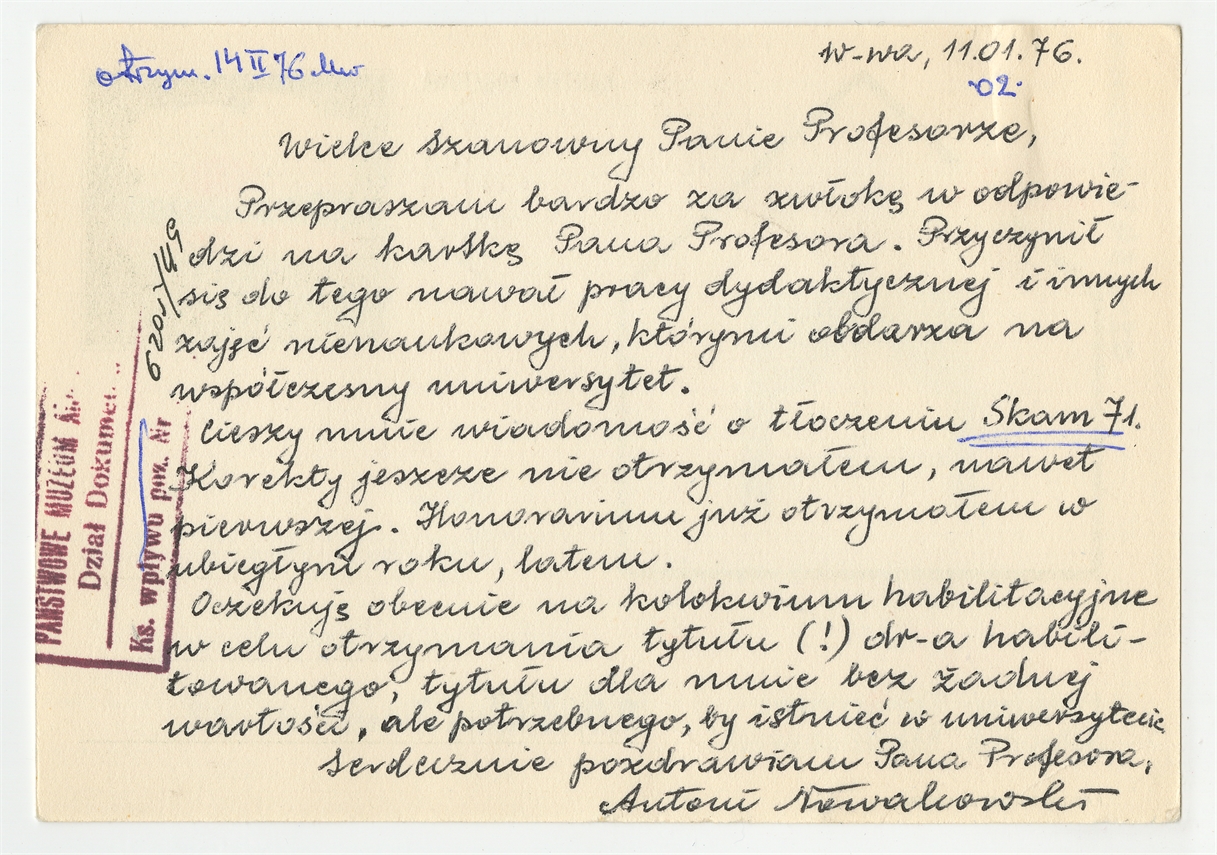 otrzym. 14 II 76
W-wa, 11.01.76.
02.
Wielce Szanowny Panie Profesorze,
Przepraszam bardzo za zwłokę w odpowie-
dzi na kartkę Pana Profesora. Przyczynił
się do tego nawał pracy dydaktycznej i innych
zajęć nienaukowych, którymi obdarza na
współczesny uniwersytet.
Cieszy mnie wiadomość o tłoczeniu Skam 71.
Korekty jeszcze nie otrzymałem, nawet
pierwszej. Honorarium już otrzymałem w
ubiegłym roku, latem.
Oczekuję obecnie na kolokwium habilitacyjne
w celu otrzymania tytułu (!) dr-a habili-
towanego, tytułu dla mnie bez żadnej
wartości, ale potrzebnego, by istnieć w uniwersytecie.
Serdecznie pozdrawiam Pana Profesora,
Antoni Nowakowski
PAŃSTWOWE MUZEUM
Dział Dokumen
Ks. wpływu poz. Nr